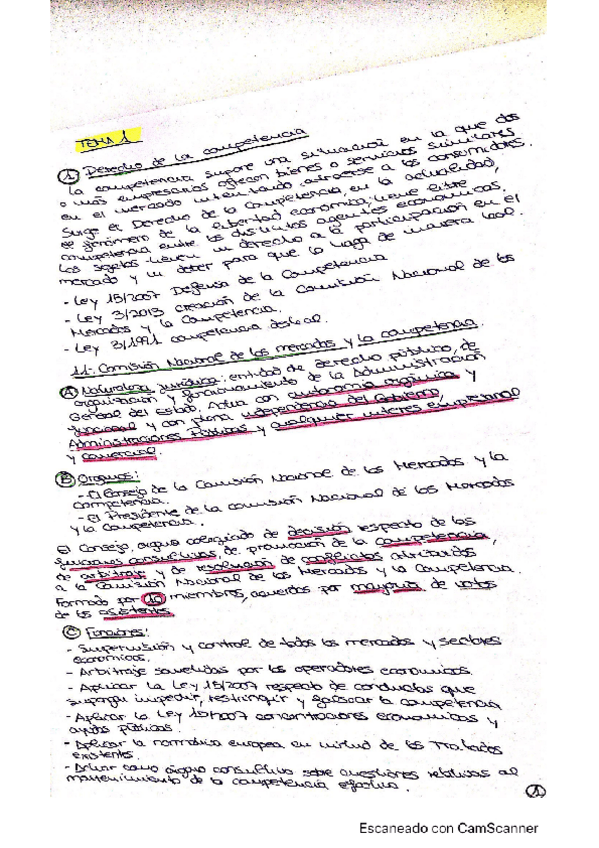 TEMA 1
1 Derecho de la competencia
La competencia supone una situación en la que dos
o más empresarios ofrecen bienes o servicios similares
en el mercado intentando atraerse a los consumidores.
Surge el Derecho de la Competencia, en la actualidad,
el fenómeno de la libertad económica: tiene libre
competencia entre los distintos agentes económicos.
Los sujetos tienen un derecho a la participación en el
mercado y un deber para que lo haga de manera leal.
- Ley 15/2007 Defensa de la Competencia
- Ley 3/2013 creación de la Comisión Nacional de los
Mercados y la Competencia.
- Ley 3/1991 competencia desleal.
1.1.- Comisión Nacional de los mercados y la competencia.
A Naturaleza Jurídica: entidad de derecho público, de
organización y funcionamiento de la Administración
General del Estado. Actúa con autonomía orgánica y
funcional y con plena independencia del Gobierno,
Administraciones Públicas y cualquier interés empresarial
y comercial.
B Organos:
- El Consejo de la Comisión Nacional de los Mercados y la
competencia.
- El Presidente de la comisión Nacional de los Mercados
y la Competencia.
El Consejo, órgano colegiado de decisión respecto de las
funciones consultivas, de promoción de la competencia,
de arbitraje y de resolución de conflictos atribuidos
a la Comisión Nacional de los Mercados y la Competencia.
Formado por 10 miembros, acuerdos por mayoría de votos
de los asistentes.
C Funciones:
- Supervisión y control de todos los mercados y sectores
económicos.
- Arbitraje sometidas por los operadores económicos.
- Aplicar la Ley 15/2007 respecto de conductas que
suponga impedir, restringir y falsear la competencia
- Aplicar la Ley 15/2007 concentraciones económicas y
ayudas públicas.
- Aplicar la normativa europea en virtud de los Tratados
existentes.
- Actuar como órgano consultivo sobre cuestiones relativas al
mantenimiento de la competencia efectiva.
1
Escaneado con CamScanner